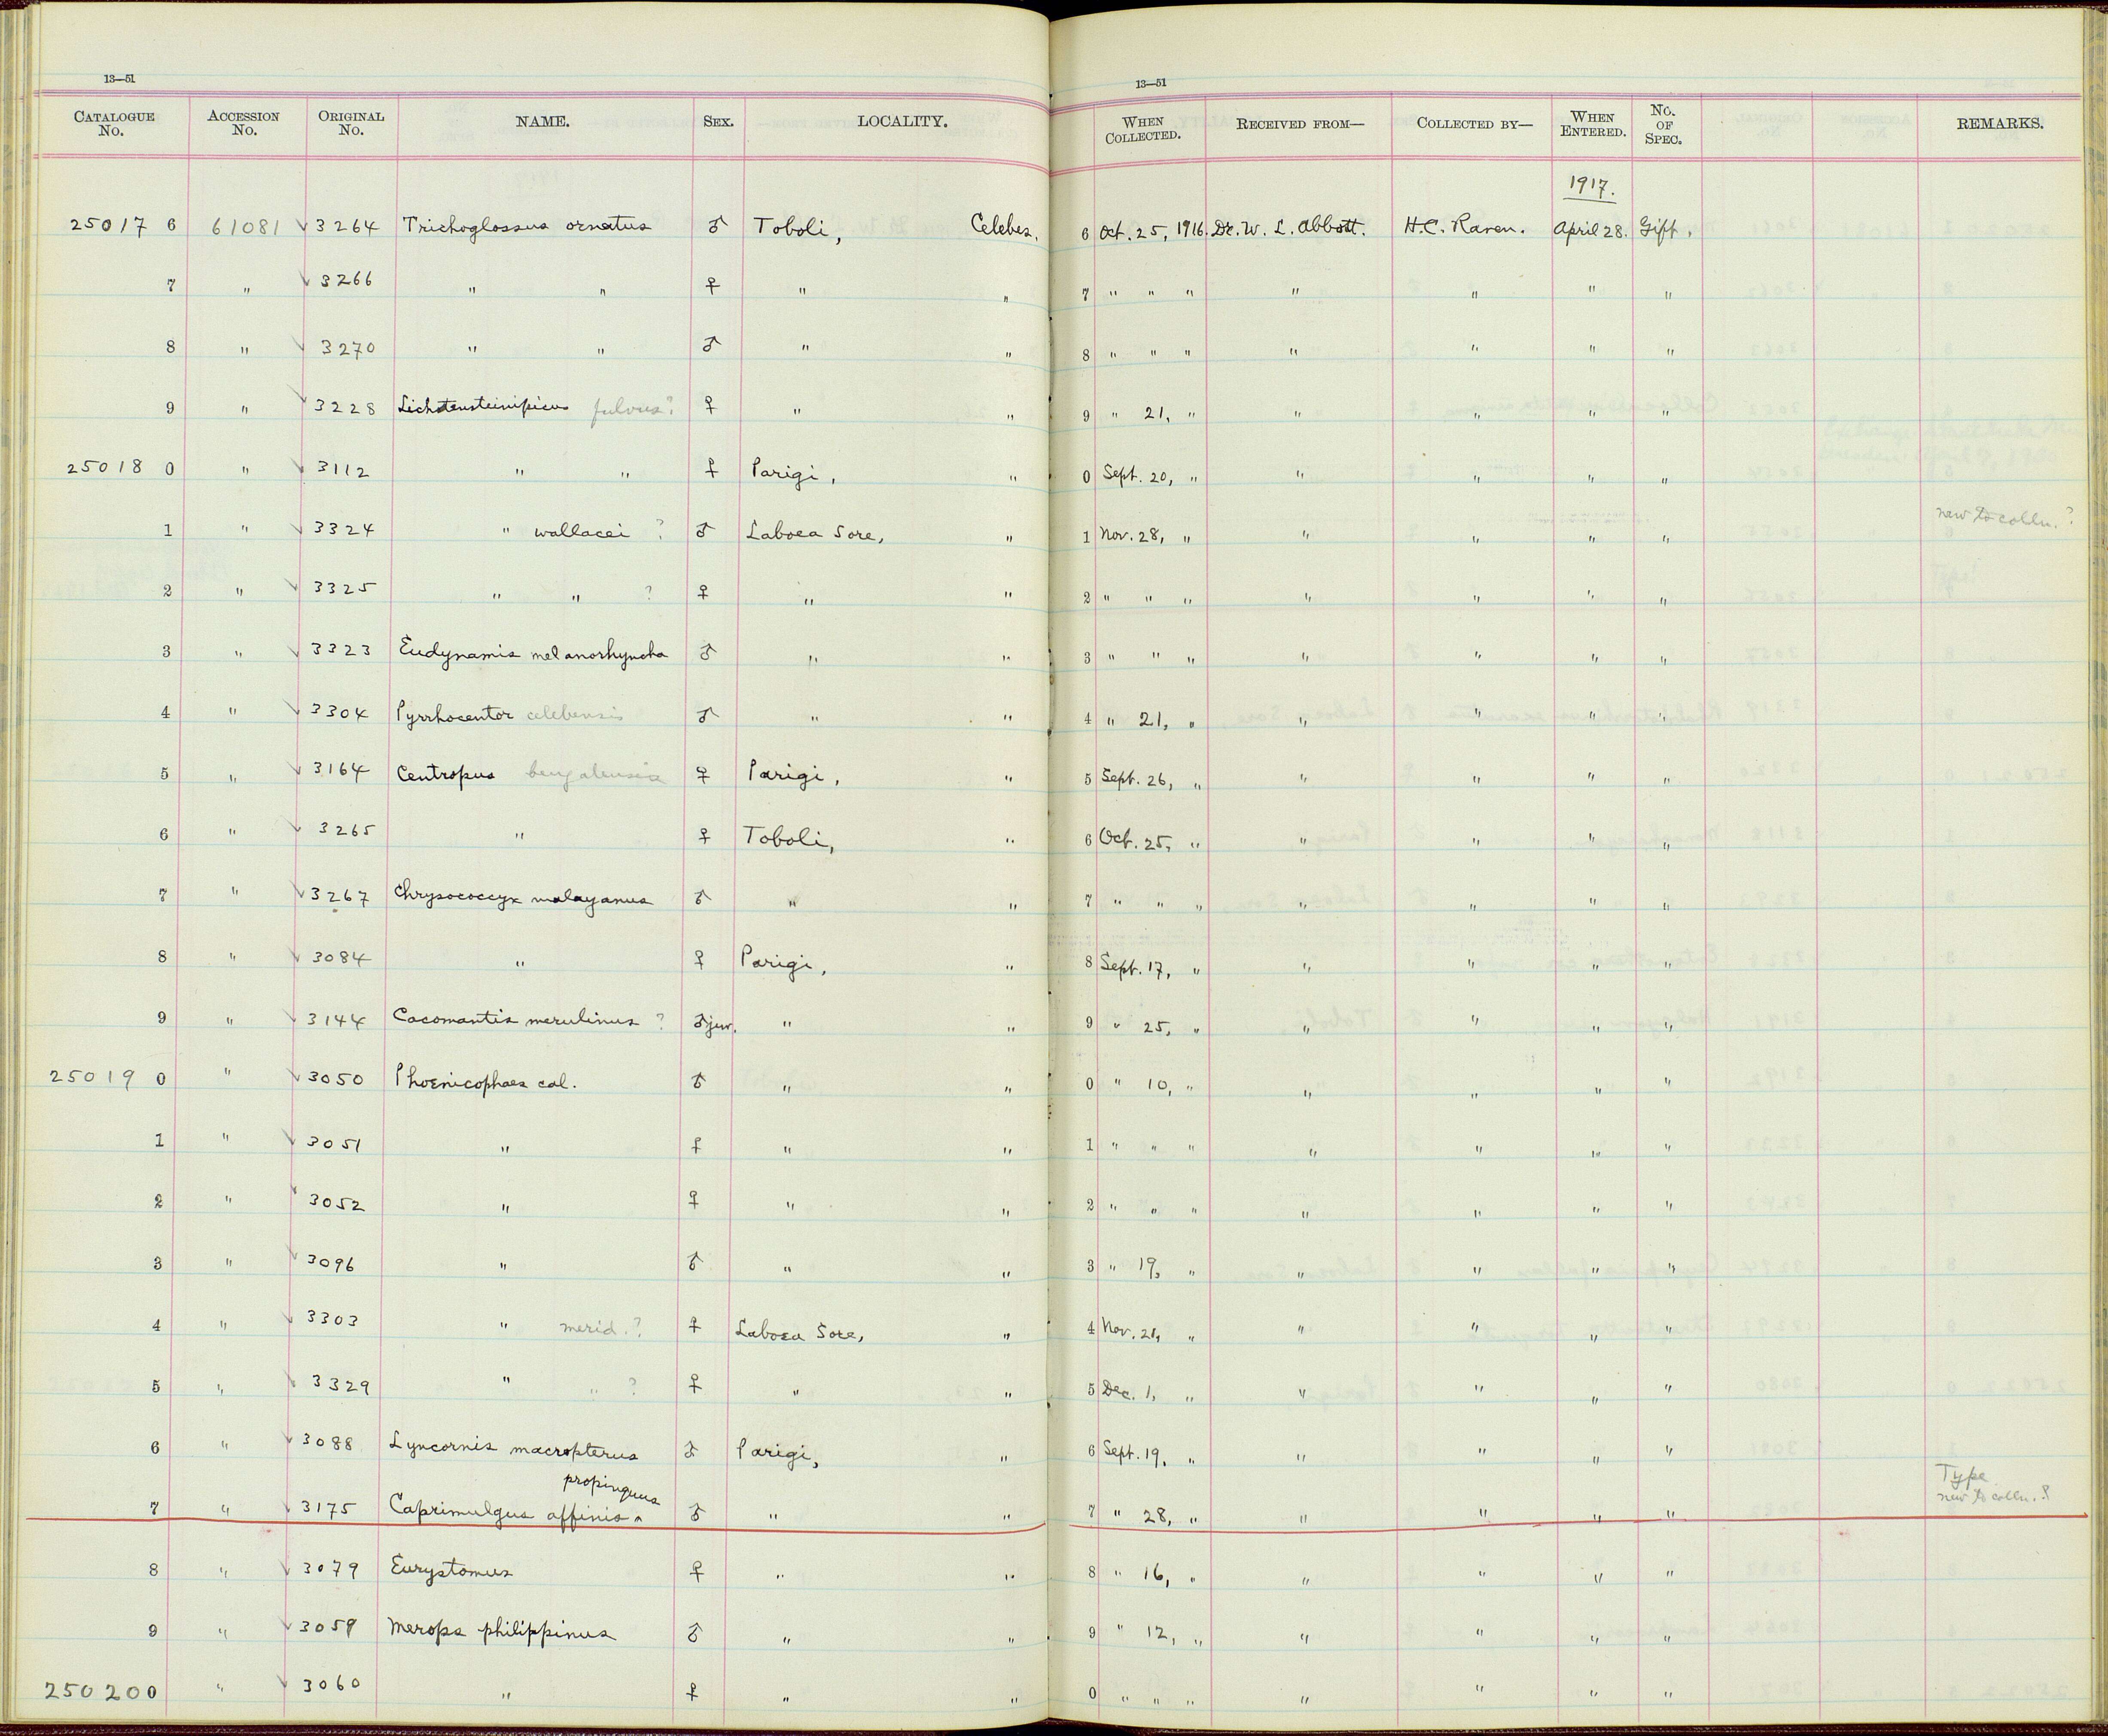 13—51
13—51
CATALOGUE No. ACCESSION No. ORIGINAL No. NAME. SEX. LOCALITY. WHEN COLLECTED. RECEIVED FROM— COLLECTED BY— WHEN ENTERED. No. OF SPEC. REMARKS.
1917.
25017 6 61081 √ 3264 Trichoglossus ornatus ♂ Toboli, Celebes. 6 Oct. 25, 1916. Dr. W. L. Abbott. H.C. Raven. April 28. Gift.
7 " √ 3266 " " ♀ " " 7 " " " " " " "
8 " √ 3270 " " ♂ " " 8 " " " " " " "
9 " √ 3228 Lichtensteinipicus fulvus? ♀ " " 9 " 21, " " " " "
25018 0 " √ 3112 " " ♀ Parigi, " 0 Sept. 20, " " " " "
1 " √ 3324 " wallacei ? ♂ Laboea Sore, " 1 Nov. 28, " " " " " new to colln. ?
2 " √ 3325 " " ? ♀ " " 2 " " " " " " "
3 " √ 3323 Eudynamis melanorhyncha ♂ " " 3 " " " " " " "
4 " √ 3304 Pyrrhocentor celebensis ♂ " " 4 " 21, " " " " "
5 " √ 3164 Centropus bengalensis ♀ Parigi, " 5 Sept. 26, " " " " "
6 " √ 3265 " ♀ Toboli, " 6 Oct. 25, " " " " "
7 " √ 3267 Chrysococcyx malayanus ♂ " " 7 " " " " " " "
8 " √ 3084 " ♀ Parigi, " 8 Sept. 17, " " " " "
9 " √ 3144 Cacomantis merulinus ? ♂ juv. " " 9 " 25, " " " " "
25019 0 " √ 3050 Phoenicophaes cal. ♂ " " 0 " 10, " " " " "
1 " √ 3051 " ♀ " " 1 " " " " " " "
2 " √ 3052 " ♀ " " 2 " " " " " " "
3 " √ 3096 " ♂ " " 3 " 19, " " " " "
4 " √ 3303 " merid. ? ♀ Laboea Sore, " 4 Nov. 21, " " " " "
5 " √ 3329 " " ? ♀ " " 5 Dec. 1, " " " " "
6 " √ 3088 Lyncornis macropterus ♂ Parigi, " 6 Sept. 19, " " " " "
propinquus Type
7 " √ 3175 Caprimulgus affinis ^ ♂ " " 7 " 28, " " " " " new to colln. ?
8 " √ 3079 Eurystomus ♀ " " 8 " 16, " " " " "
9 " √ 3059 Merops philippinus ♂ " " 9 " 12, " " " " "
25020 0 " √ 3060 " ♀ " " 0 " " " " " " "